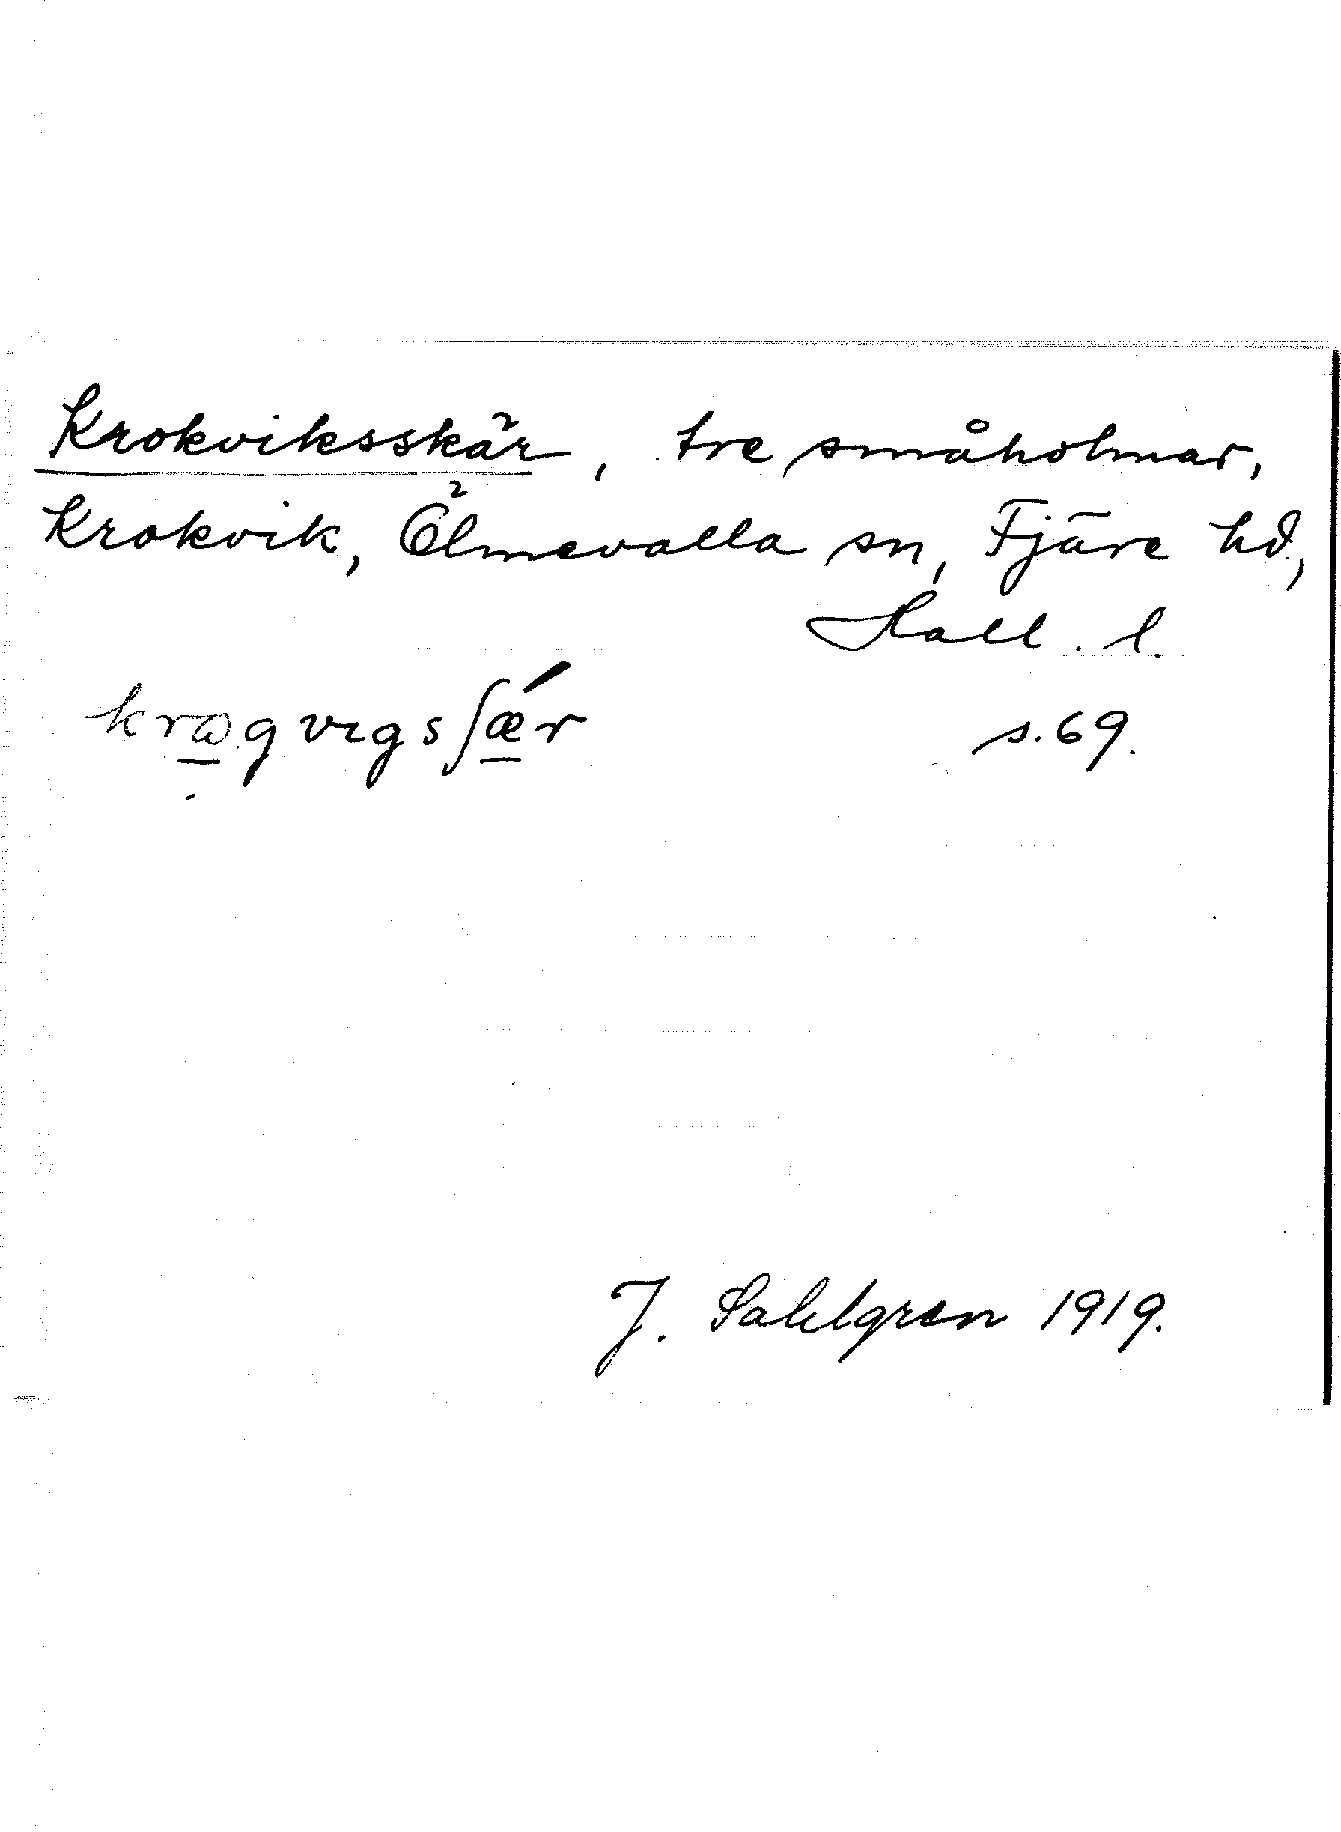 Krokviksskär, tre småholmar,
Krokvik, Ölmevalla sn, Fjäre hd,
Hall. l.
krɷgvɪgsʃǽr s. 69.
J. Sahlgren 1919.